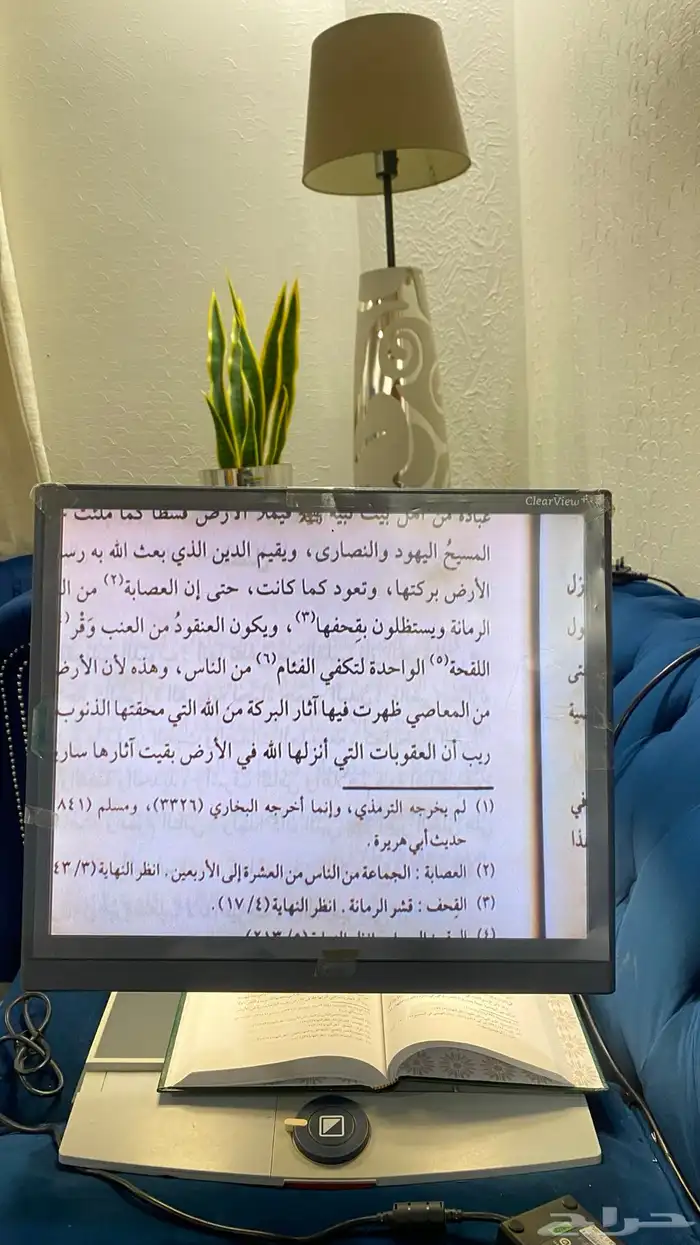 ClearView
عباده من أهل بيت نبيه ﷺ فيملأ الأرض قسطا كما ملئت
المسيحُ اليهود والنصارى، ويقيم الدين الذي بعث الله به
الأرض بركتها، وتعود كما كانت، حتى إن العصابة(٢) من
الرمانة ويستظلون بقِحفها(٣)، ويكون العنقودُ من العنب وَقْر
اللقحة(٥) الواحدة لتكفي الفئام(٦) من الناس، وهذه لأن
من المعاصي ظهرت فيها آثار البركة من الله التي محقتها الذنوب
ريب أن العقوبات التي أنزلها الله في الأرض بقيت آثارها
(١) لم يخرجه الترمذي، وإنما أخرجه البخاري (٣٣٢٦)، ومسلم (٨٤١
حديث أبي هريرة.
(٢) العصابة : الجماعة من الناس من العشرة إلى الأربعين. انظر النهاية (٣/ ٤٣
(٣) القِحف : قشر الرمانة. انظر النهاية (٤/ ١٧).
حراج